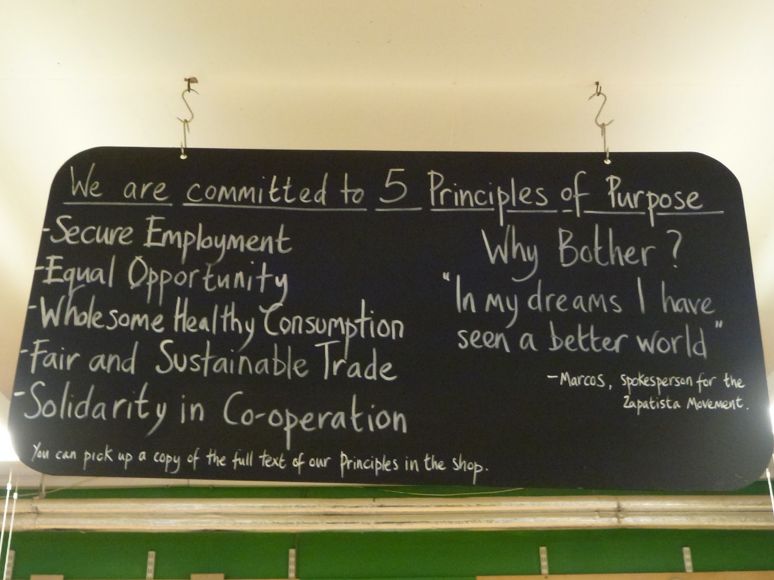 We are committed to 5 Principles of Purpose
-Secure Employment
-Equal Opportunity
-Wholesome Healthy Consumption
-Fair and Sustainable Trade
-Solidarity in Co-operation
You can pick up a copy of the full text of our Principles in the shop.
Why Bother?
"In my dreams I have
seen a better world"
-Marcos, spokesperson for the
Zapatista Movement.